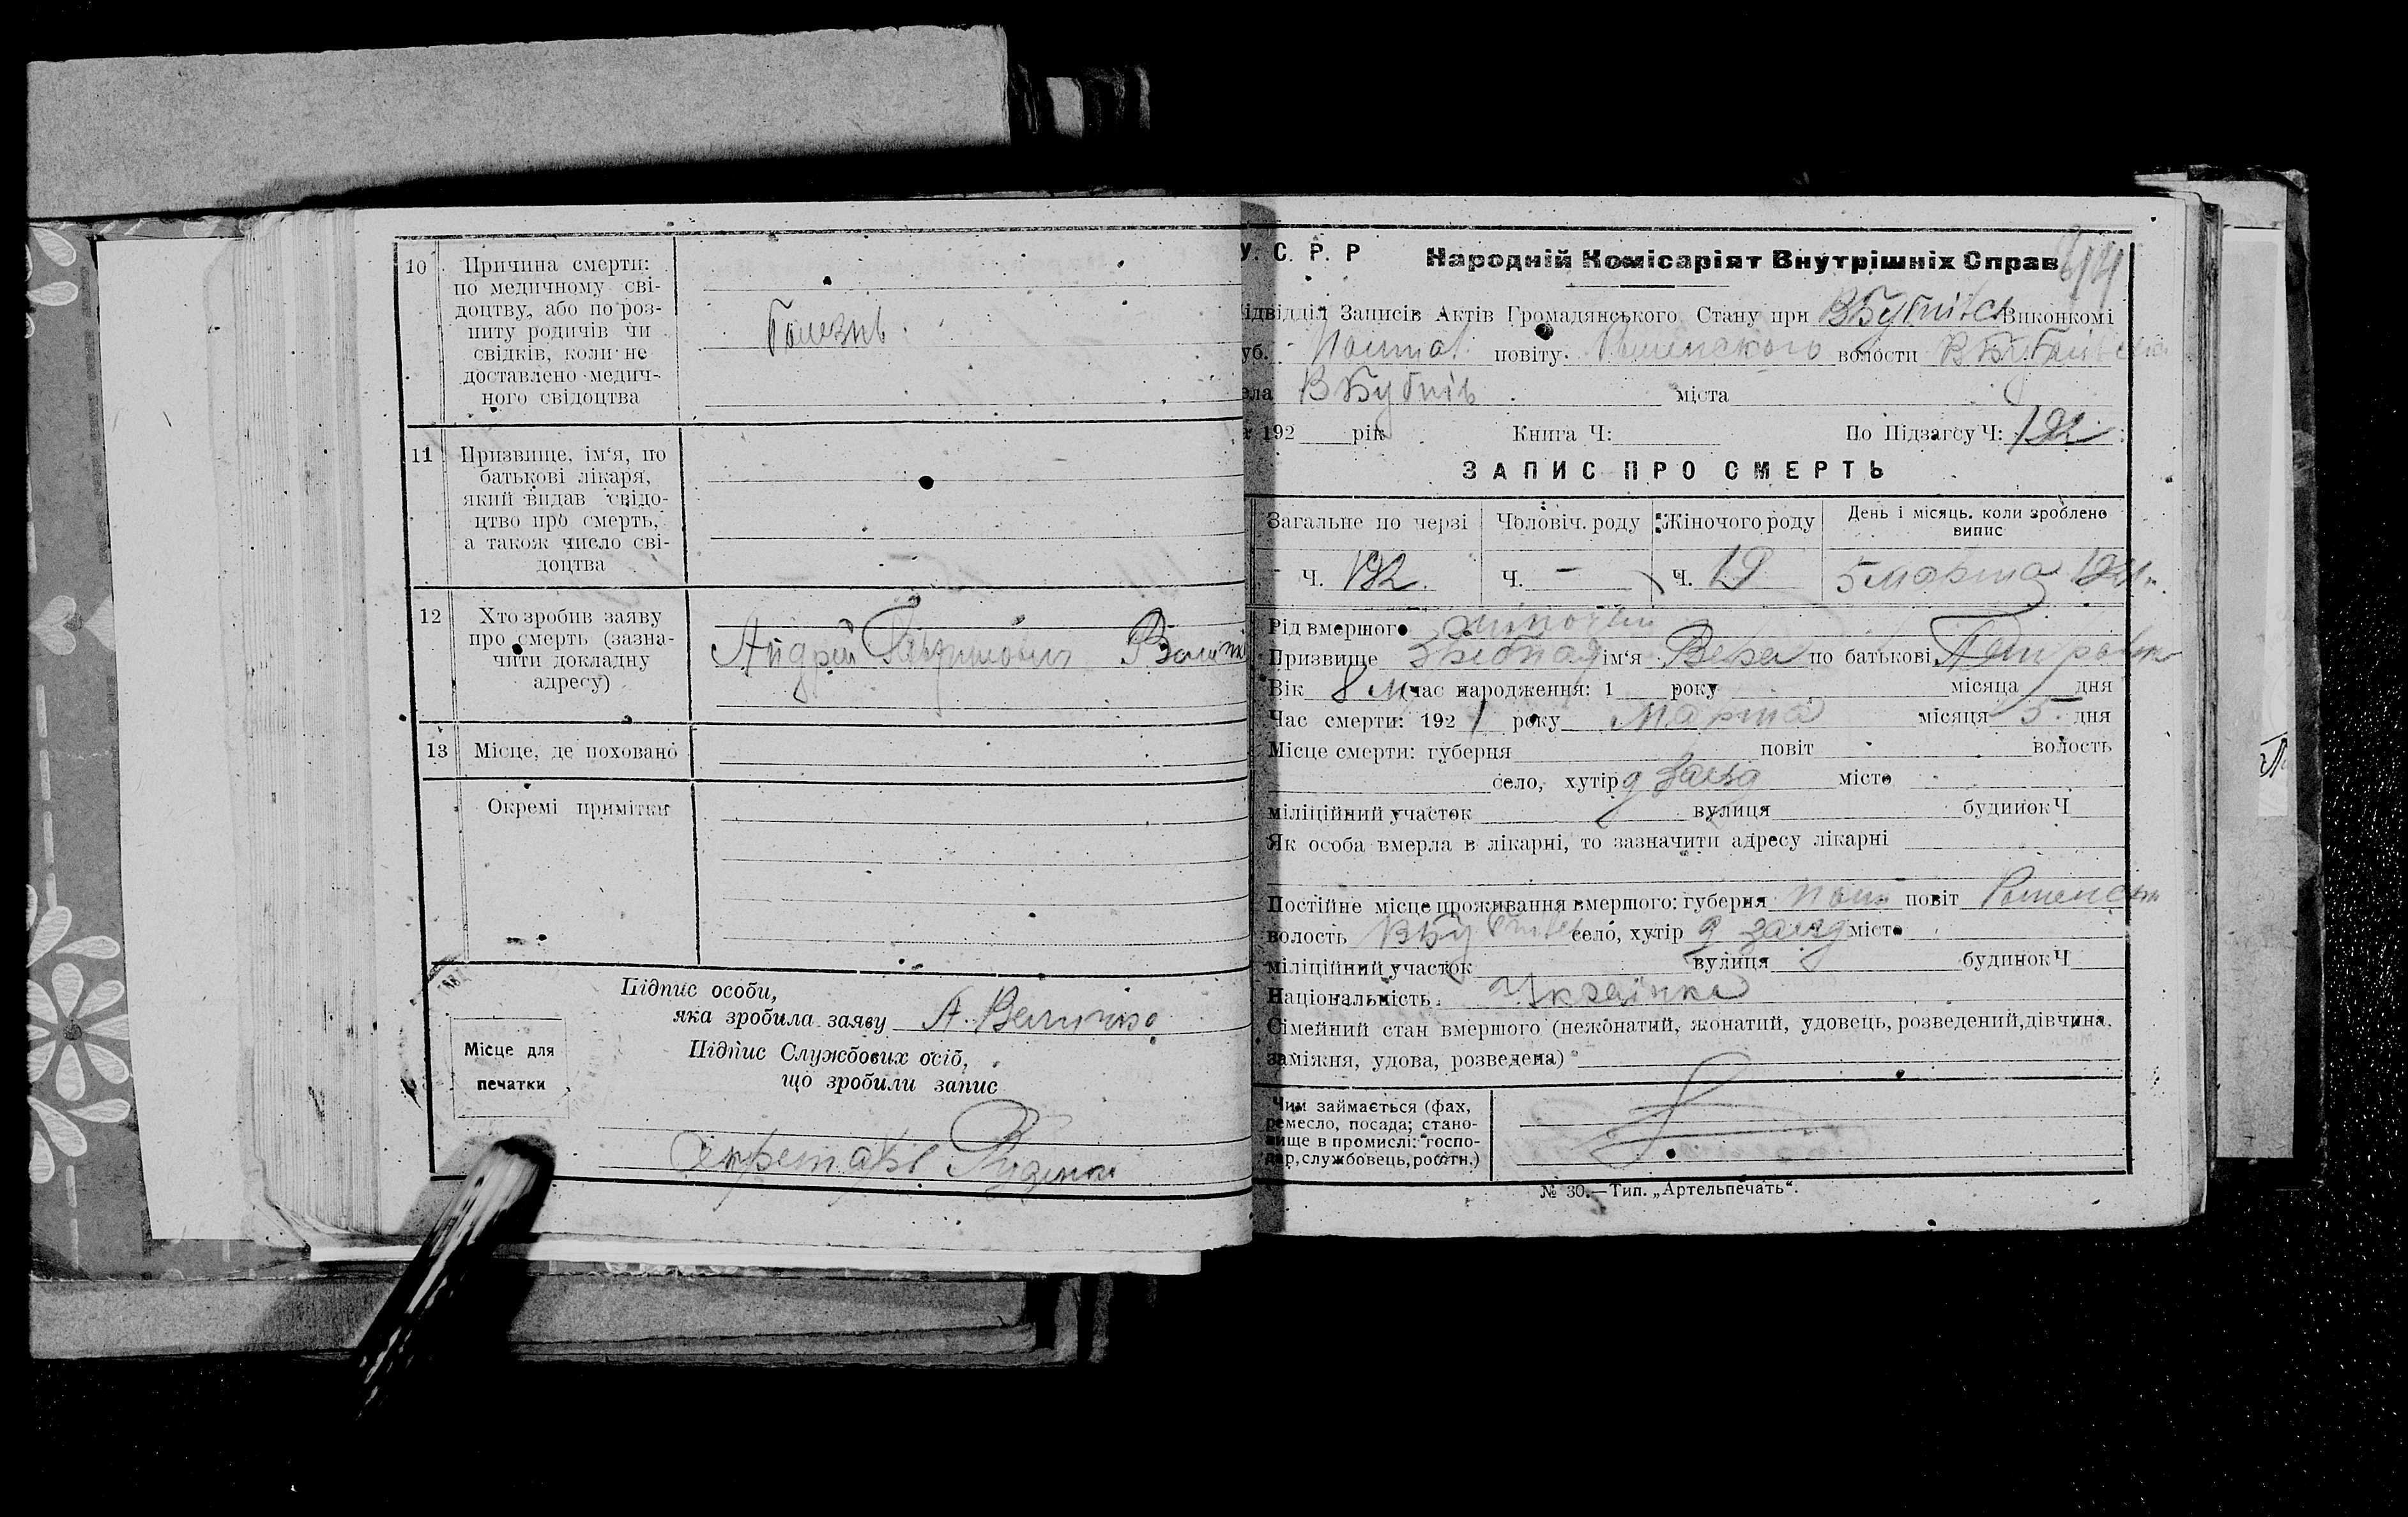 10 Причина смерти:
по медичному сві-
доцтву, або по роз-
питу родичів чи
свідків, коли не
доставлено медич-
ного свідоцтва
Болезнь
11 Призвище, ім'я, по
батькові лікаря,
який видав свідо-
цтво про смерть,
а також число сві-
доцтва
12 Хто зробив заяву
про смерть (зазна-
чити докладну
адресу)
Андрій
13 Місце, де поховано
Окремі примітки
Підпис особи,
яка зробила заяву А. Величко
Місце для
печатки
Підпис Службових осіб,
що зробили запис
Секретарь Руденко
У. С. Р. Р Народній Комісаріят Внутрішніх Справ
ідвідділ Записів Актів Громадянського Стану при ВБубнівс Виконкомі
уб. Полтав. повіту Роменского волости ВБубнівська
ела ВБубнів міста
192 рік Книга Ч: По Підзагсу Ч: 192
ЗАПИС ПРО СМЕРТЬ
Загальне по черзі Чоловіч. роду Жіночого роду День і місяць. коли зроблено
випис
Ч. 192 Ч. — Ч. 19 5 марта
Рід вмершого жіночий
Призвище ім'я Вера по батькові Петровна
Вік 8 м час народження: 1 року місяца дня
Час смерти: 192 1 року Марта місяця 5 дня
Місце смерти: губерня повіт волость
село, хутір місто
міліційний участок вулиця будинок Ч
Як особа вмерла в лікарні, то зазначити адресу лікарні
Постійне місце проживання вмершого: губерня Полт повіт Роменськ
волость ВБубнівс село, хутір місто
міліційний участок вулиця будинок Ч
Національність Українка
Сімейний стан вмершого (нежонатий, жонатий, удовець, розведений, дівчина,
заміжня, удова, розведена)
Чим займається (фах,
ремесло, посада; стано-
вище в промислі: госпо-
дар, службовець, робітн.)
№ 30.—Тип. „Артельпечать“.